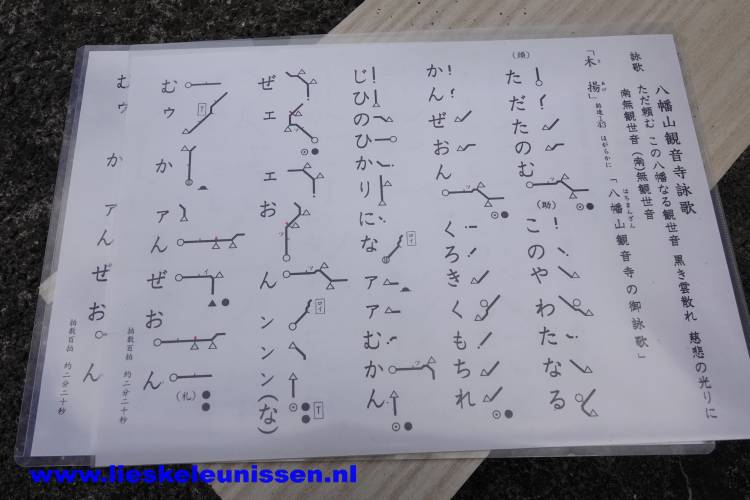 八幡山観音寺詠歌
詠歌 ただ頼む この八幡なる観世音 黒き雲散れ 慈悲の光りに
南無観世音 (南)無観世音
「木揚」 はがらかに 「八幡山観音寺の御詠歌」
はちまんざん
(頭) ただたのむ (助) このやわたなる
かんぜおん くろきくもちれ
じひのひかりに なァァむかん
ぜェェおんンンン(な)
むゥかァんぜおん (札)
拍数百拍 約二分二十秒
むゥかァんぜおん
拍数百拍 約二分二十秒
www.lieskeleunissen.nl